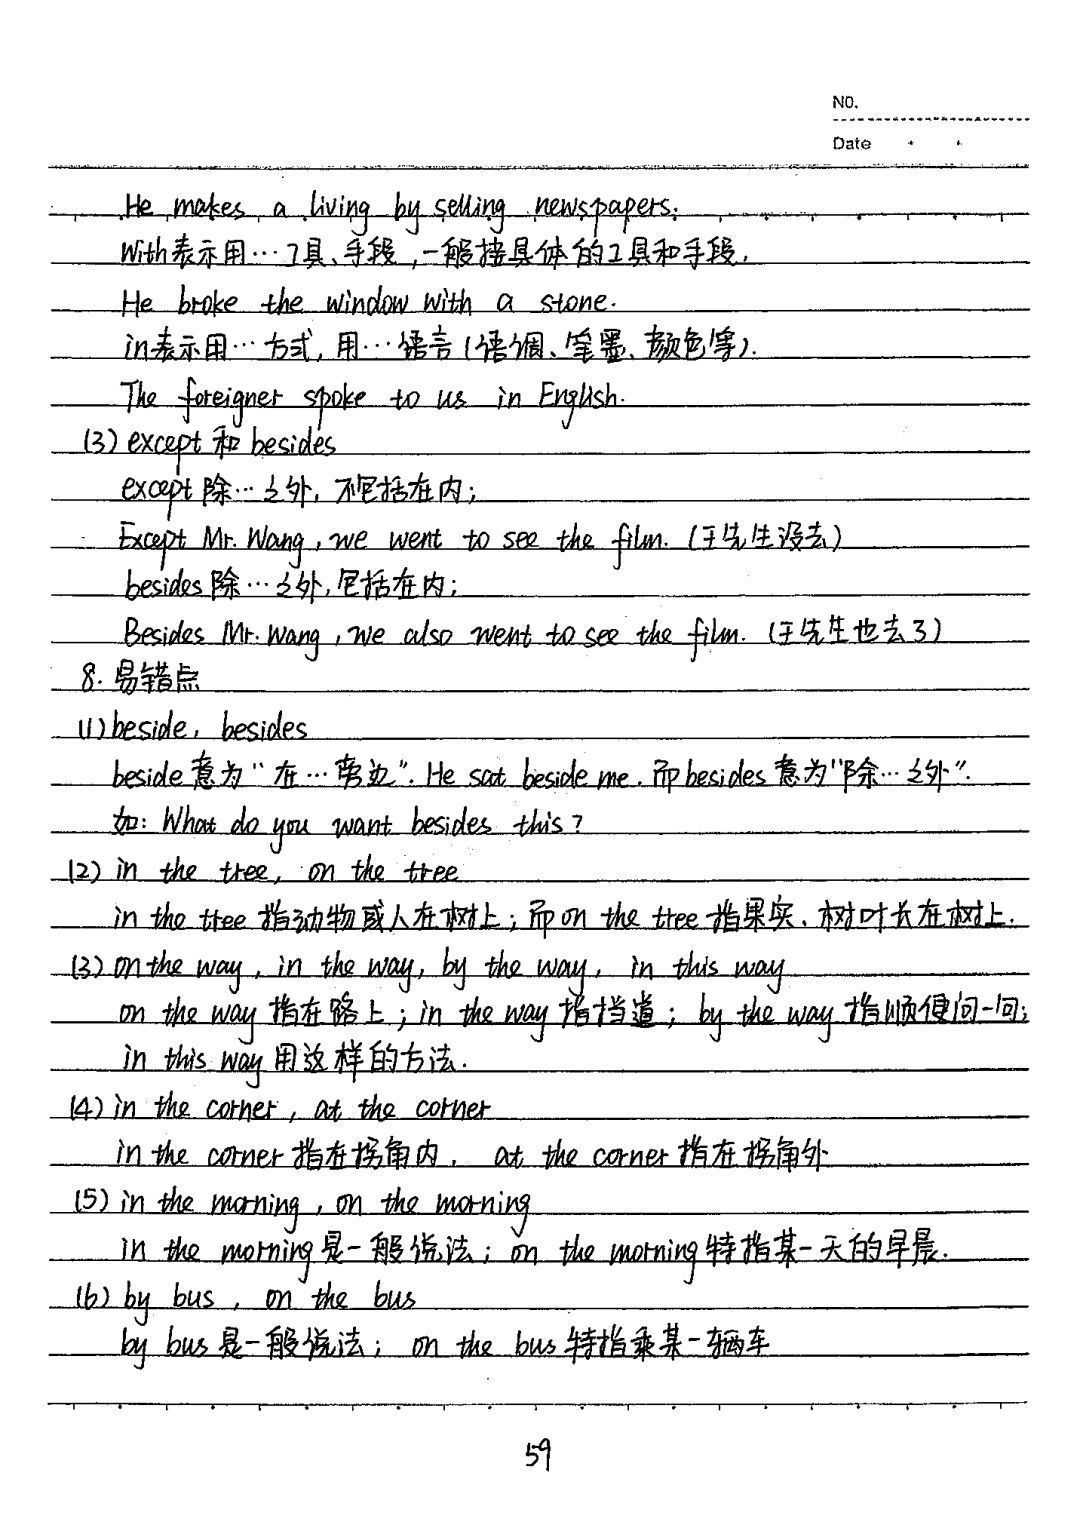 NO.
Date
He makes a living by selling newspapers.
With表示用…工具、手段,一般接具体的工具和手段.
He broke the window with a stone.
in表示用…方式,用…语言(语调、笔墨、颜色等).
The foreigner spoke to us in English.
(3) except 和 besides
except 除…之外,不包括在内;
Except Mr. Wang, we went to see the film. (王先生没去)
besides 除…之外,包括在内;
Besides Mr. Wang, we also went to see the film. (王先生也去了)
8. 易错点
(1) beside, besides
beside 意为"在…旁边". He sat beside me. 而 besides 意为"除…之外".
如: What do you want besides this?
(2) in the tree, on the tree
in the tree 指动物或人在树上; 而 on the tree 指果实、树叶长在树上.
(3) on the way, in the way, by the way, in this way
on the way 指在路上; in the way 指挡道; by the way 指顺便问一问;
in this way 用这样的方法.
(4) in the corner, at the corner
in the corner 指在拐角内. at the corner 指在拐角外
(5) in the morning, on the morning
in the morning 是一般说法; on the morning 特指某一天的早晨.
(6) by bus, on the bus
by bus 是一般说法; on the bus 特指乘某一辆车
59